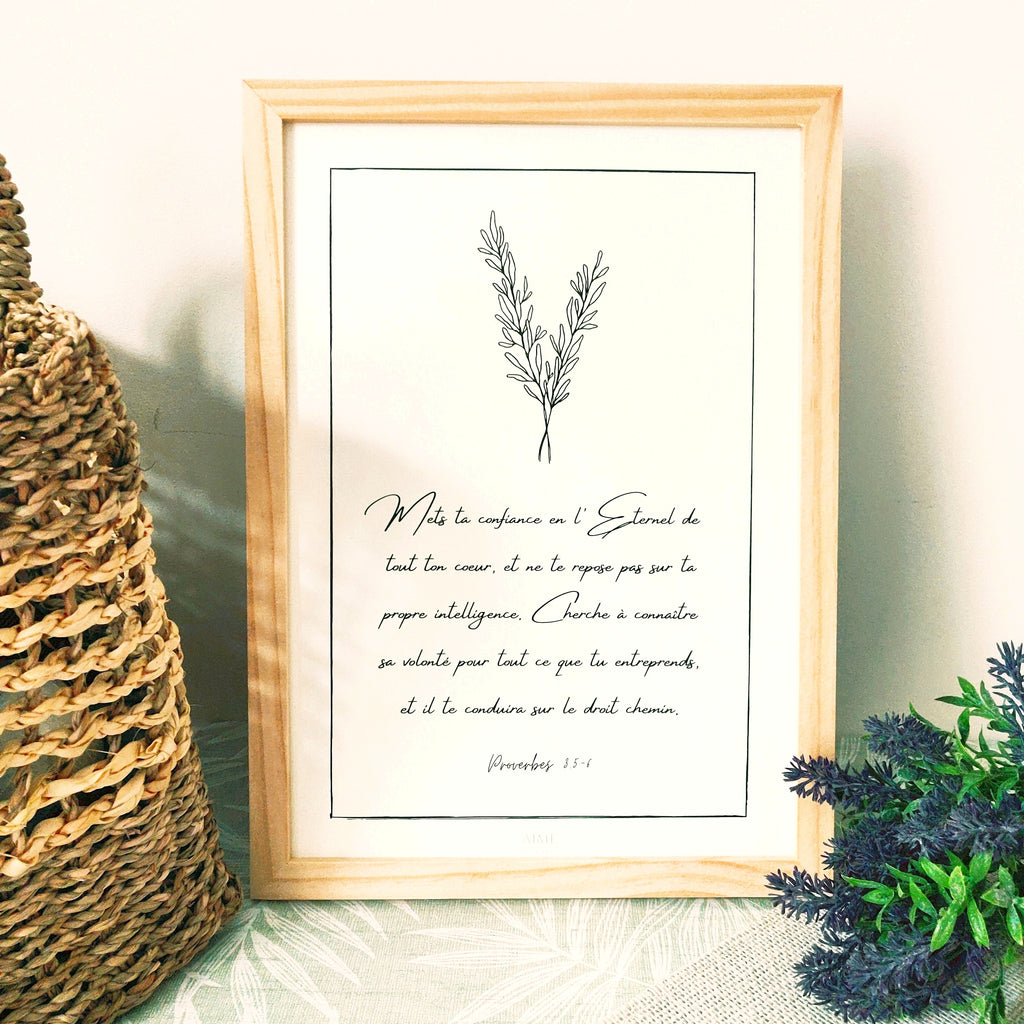 Mets ta confiance en l' Eternel de
tout ton coeur, et ne te repose pas sur ta
propre intelligence. Cherche à connaître
sa volonté pour tout ce que tu entreprends,
et il te conduira sur le droit chemin.
Proverbes 3.5-6
AIME